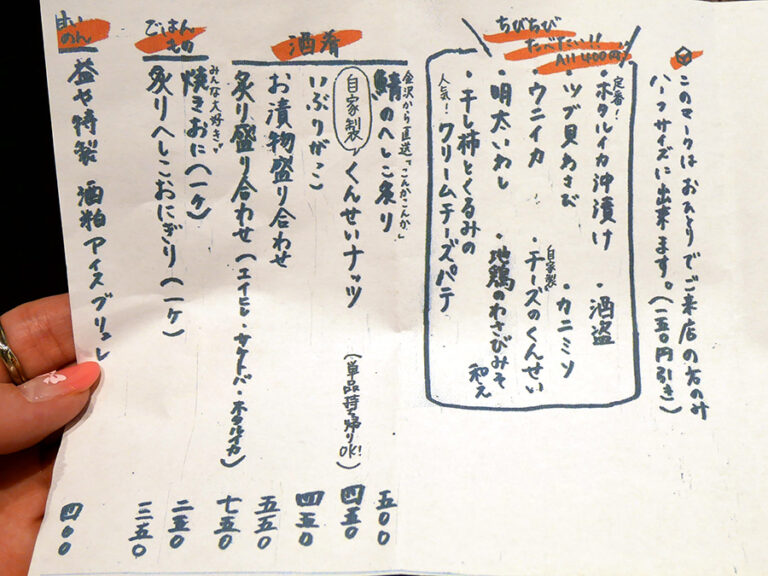 このマークはおひとりでご来店の方のみ
ハーフサイズに出来ます。(一五〇円引き)
ちびちび
たべたい!!
All 400円!!
定番!
・ホタルイカ沖漬け
・酒盗
・ツブ貝わさび
・カニミソ
・ウニイカ
自家製
・チーズのくんせい
・明太いわし
・地鶏のわさびみそ和え
・干し柿とくるみの
人気!クリームチーズパテ
酒肴
金沢から直送"こんかこんか"
鯖のへしこ炙り 五〇〇
自家製くんせいナッツ (単品持ち帰りOK!) 四五〇
いぶりがっこ 四五〇
お漬物盛り合わせ 五五〇
炙り盛り合わせ(エイヒレ・サケトバ・ホタルイカ) 七五〇
ごはんもの
みんな大好き
焼きおに(一ヶ) 二五〇
炙りへしこおにぎり(一ヶ) 三五〇
甘いのん
益や特製 酒粕アイスブリュレ 四〇〇